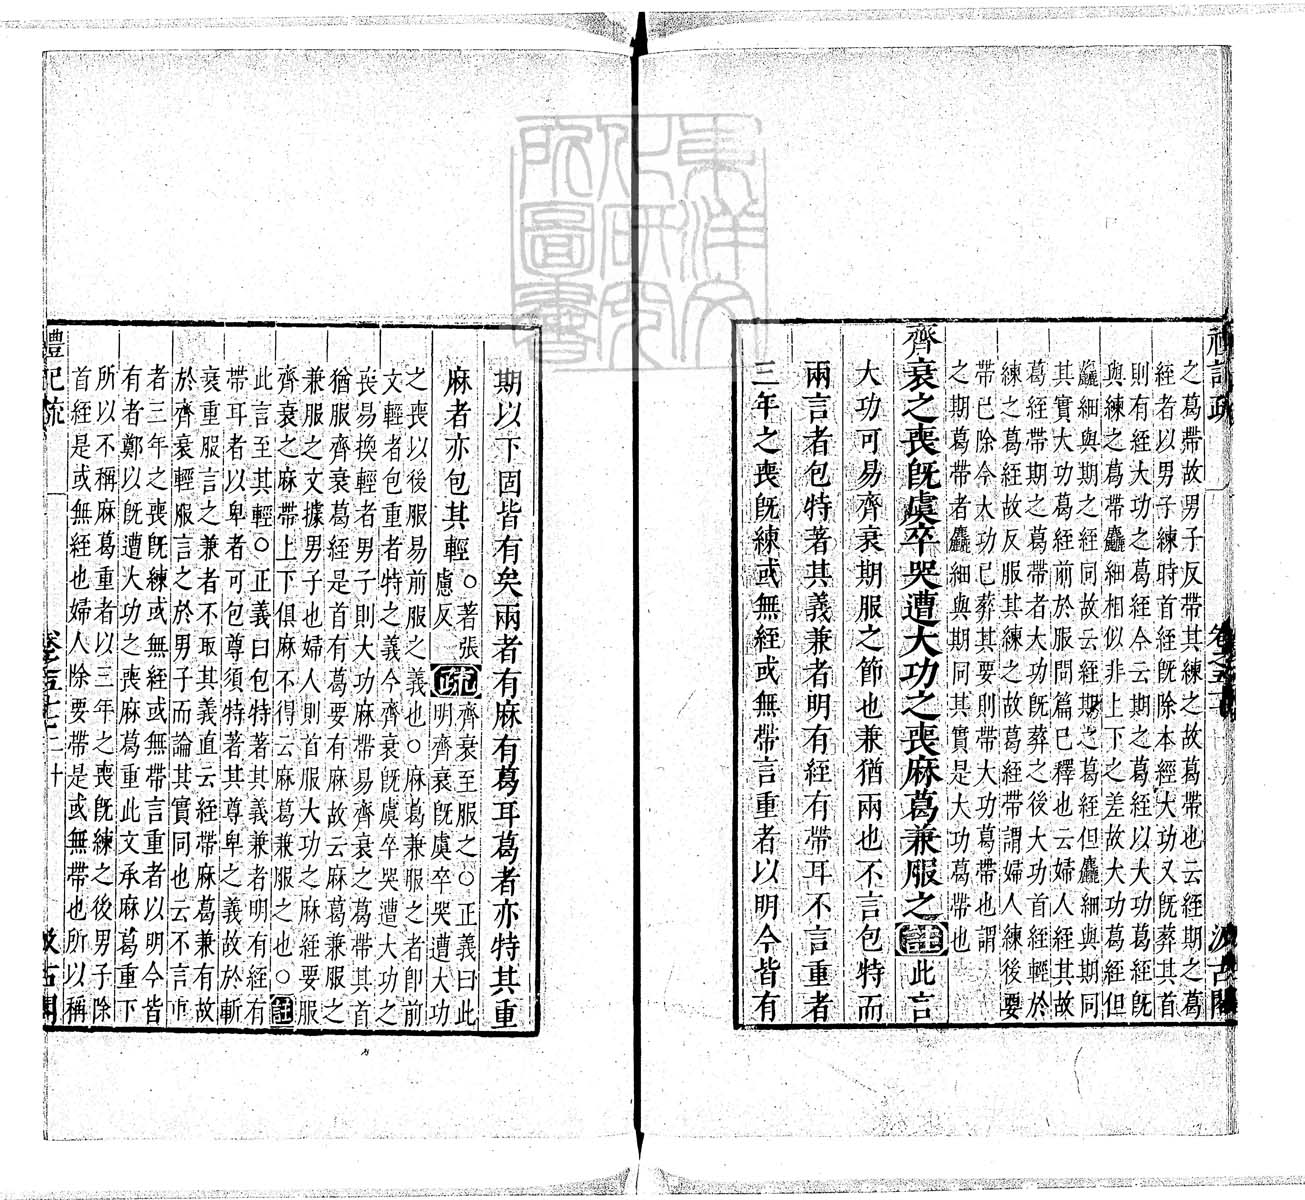 之葛帶故男子反帶其練之故葛帶也云絰期之葛
絰者以男子練時首絰既除本經大功又既葬其首
則有絰大功之葛絰今云期之葛絰以大功葛絰既
與練之葛帶麤細相似非上下之差故大功葛絰但
麤細與期之絰同故云絰期之葛絰但麤細與期同
其實大功葛絰前於服問篇已釋也云婦人絰其故
葛絰帶期之葛帶者大功既葬之後大功首絰輕於
練之葛絰故反服其練之故葛絰帶謂婦人練後要
帶已除今大功已葬其要則帶大功葛帶也謂
之期葛帶者麤細與期同其實是大功葛帶也
齊衰之喪既虞卒哭遭大功之喪麻葛兼服之註此言
大功可易齊衰期服之節也兼猶兩也不言包特而
兩言者包特著其義兼者明有絰有帶耳不言重者
三年之喪既練或無絰或無帶言重者以明今皆有
期以下固皆有矣兩者有麻有葛耳葛者亦特其重
麻者亦包其輕
○著張
慮反
疏
齊衰至服之○正義曰此
明齊衰既虞卒哭遭大功
之喪以後服易前服之義也○麻葛兼服之者卽前
文輕者包重者特之義今齊衰既虞卒哭遭大功之
喪易換輕者男子則大功麻帶易齊衰之葛帶其首
猶服齊衰葛絰是首有葛要有麻故云麻葛兼服之
兼服之文據男子也婦人則首服大功之麻絰要服
齊衰之麻帶上下俱麻不得云麻葛兼服之也○註
此言至其輕○正義曰包特著其義兼者明有絰有
帶耳者以卑者可包尊須特著其尊卑之義故於斬
衰重服言之兼者不取其義直云絰帶麻葛兼有故
於齊衰輕服言之於男子而論其實同也云不言重
者三年之喪既練或無絰或無帶言重者以明今皆
有者鄭以既遭大功之喪麻葛重此文承麻葛重下
所以不稱麻葛重者以三年之喪既練之後男子除
首絰是或無絰也婦人除要帶是或無帶也所以稱
禮記疏 卷之五十七 二十 汲古閣